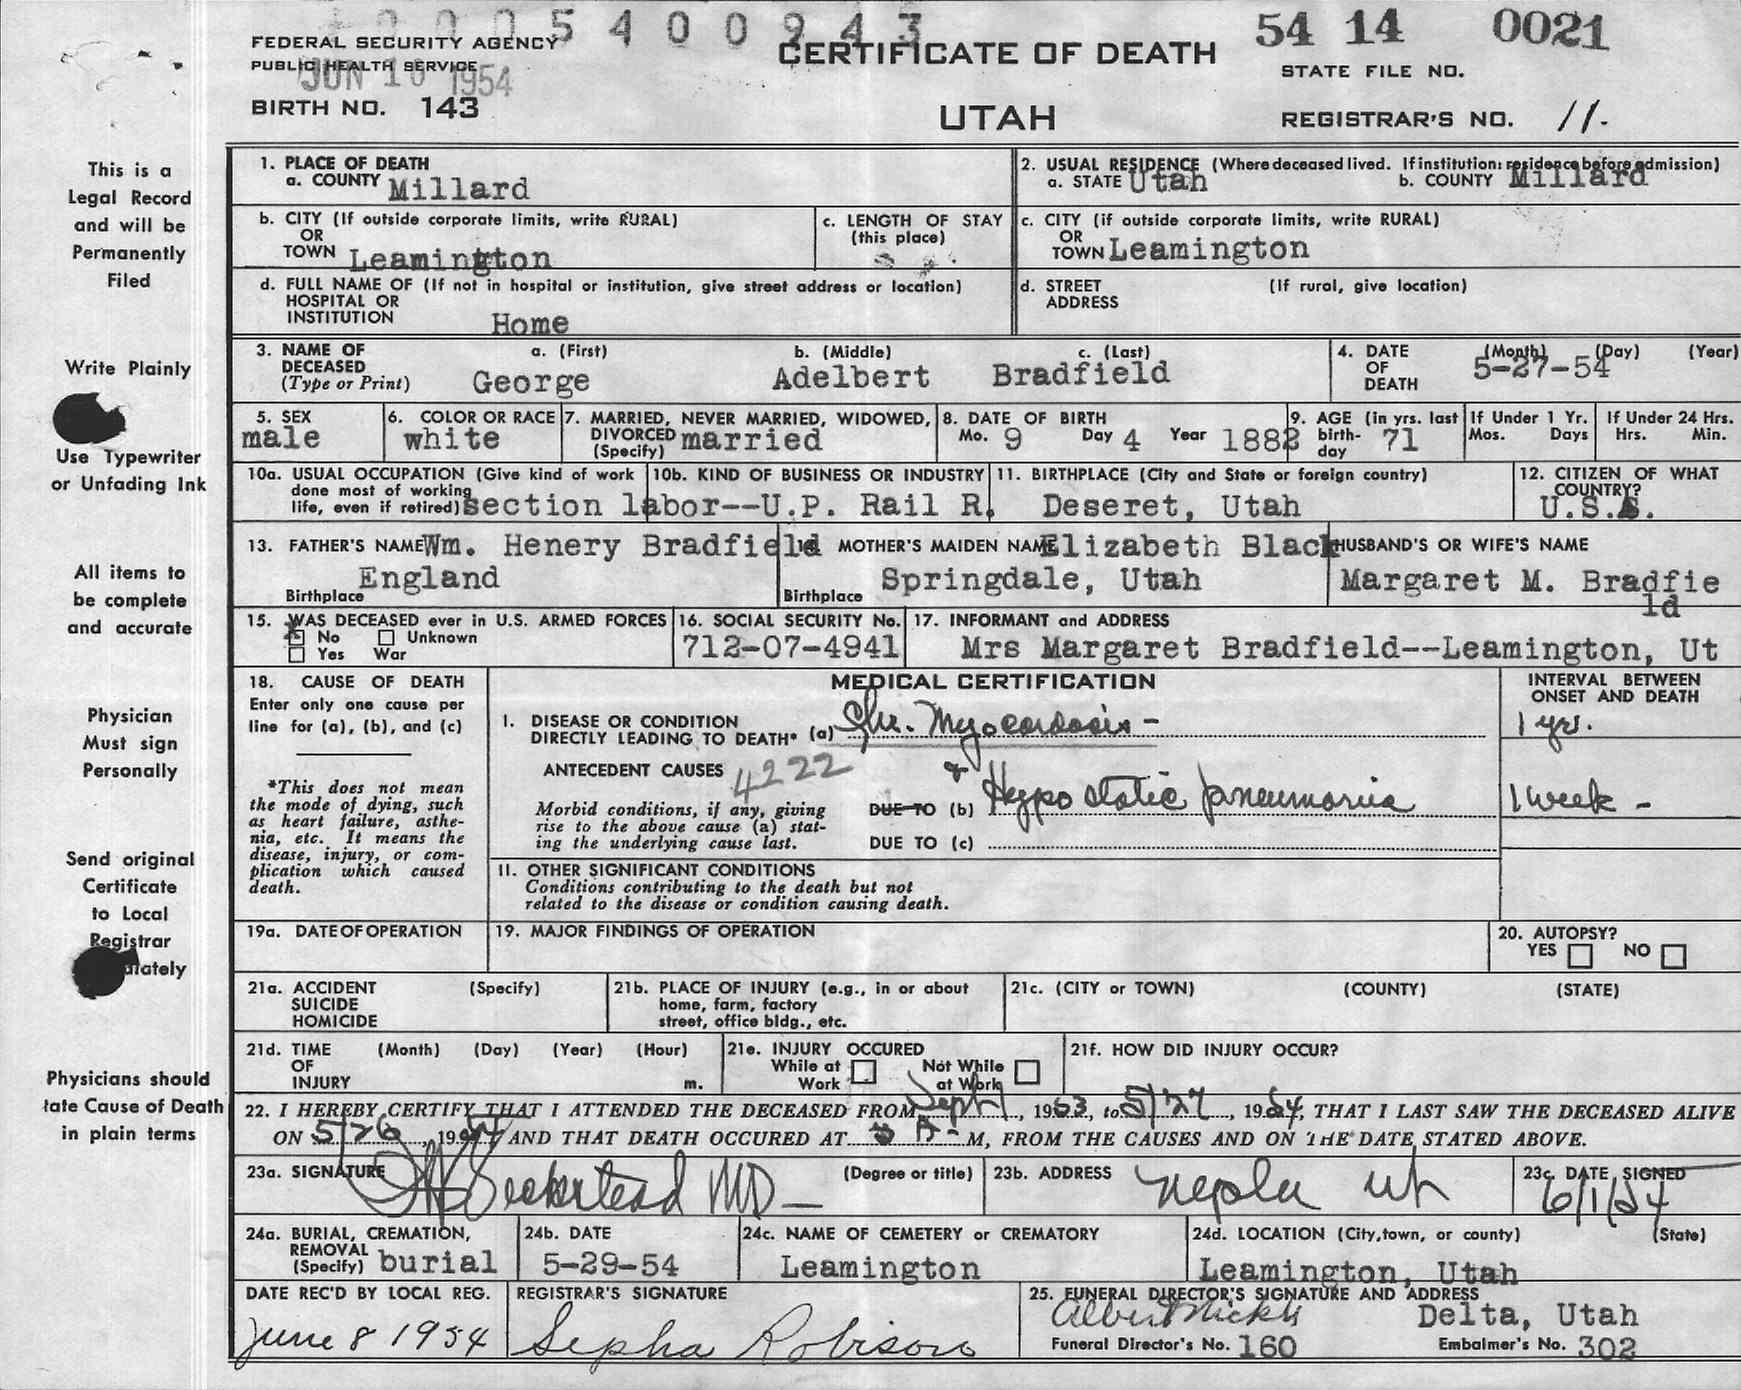 10005400943
54 14 0021
FEDERAL SECURITY AGENCY
PUBLIC HEALTH SERVICE
JUN 10 1954
CERTIFICATE OF DEATH
STATE FILE NO.
BIRTH NO. 143
UTAH
REGISTRAR'S NO. 11.
This is a
Legal Record
and will be
Permanently
Filed
1. PLACE OF DEATH
a. COUNTY Millard
2. USUAL RESIDENCE (Where deceased lived. If institution: residence before admission)
a. STATE Utah b. COUNTY Millard
b. CITY (If outside corporate limits, write RURAL)
OR
TOWN Leamington
c. LENGTH OF STAY
(this place)
c. CITY (if outside corporate limits, write RURAL)
OR
TOWN Leamington
d. FULL NAME OF (If not in hospital or institution, give street address or location)
HOSPITAL OR
INSTITUTION Home
d. STREET (If rural, give location)
ADDRESS
Write Plainly
3. NAME OF a. (First) b. (Middle) c. (Last)
DECEASED
(Type or Print) George Adelbert Bradfield
4. DATE (Month) (Day) (Year)
OF
DEATH 5-27-54
Use Typewriter
or Unfading Ink
5. SEX
male
6. COLOR OR RACE
white
7. MARRIED, NEVER MARRIED, WIDOWED,
DIVORCED
(Specify) married
8. DATE OF BIRTH
Mo. 9 Day 4 Year 1882
9. AGE (in yrs. last
birth-
day 71
If Under 1 Yr.
Mos. Days
If Under 24 Hrs.
Hrs. Min.
10a. USUAL OCCUPATION (Give kind of work
done most of working
life, even if retired) section labor--U.P. Rail R.
10b. KIND OF BUSINESS OR INDUSTRY
11. BIRTHPLACE (City and State or foreign country)
Deseret, Utah
12. CITIZEN OF WHAT
COUNTRY?
U.S.A.
All items to
be complete
and accurate
13. FATHER'S NAME Wm. Henery Bradfield
Birthplace England
14 MOTHER'S MAIDEN NAME Elizabeth Black
Birthplace Springdale, Utah
HUSBAND'S OR WIFE'S NAME
Margaret M. Bradfie
ld
15. WAS DECEASED ever in U.S. ARMED FORCES
x No Unknown
Yes War
16. SOCIAL SECURITY No.
712-07-4941
17. INFORMANT and ADDRESS
Mrs Margaret Bradfield--Leamington, Ut
Physician
Must sign
Personally
18. CAUSE OF DEATH
Enter only one cause per
line for (a), (b), and (c)
*This does not mean
the mode of dying, such
as heart failure, asthe-
nia, etc. It means the
disease, injury, or com-
plication which caused
death.
MEDICAL CERTIFICATION
INTERVAL BETWEEN
ONSET AND DEATH
I. DISEASE OR CONDITION
DIRECTLY LEADING TO DEATH* (a) Chr. Myocardosis - 1 yr.
ANTECEDENT CAUSES 4222 &
Morbid conditions, if any, giving
rise to the above cause (a) stat-
ing the underlying cause last.
DUE TO (b) Hypostatic pneumonia 1 week -
DUE TO (c)
II. OTHER SIGNIFICANT CONDITIONS
Conditions contributing to the death but not
related to the disease or condition causing death.
Send original
Certificate
to Local
Registrar
iately
19a. DATE OF OPERATION
19. MAJOR FINDINGS OF OPERATION
20. AUTOPSY?
YES NO
21a. ACCIDENT (Specify)
SUICIDE
HOMICIDE
21b. PLACE OF INJURY (e.g., in or about
home, farm, factory
street, office bldg., etc.
21c. (CITY or TOWN) (COUNTY) (STATE)
21d. TIME (Month) (Day) (Year) (Hour)
OF
INJURY m.
21e. INJURY OCCURED
While at Not While
Work at Work
21f. HOW DID INJURY OCCUR?
Physicians should
tate Cause of Death
in plain terms
22. I HEREBY CERTIFY THAT I ATTENDED THE DECEASED FROM Sept, 1953, to 5/27, 1954, THAT I LAST SAW THE DECEASED ALIVE
ON 5/26, 1954 AND THAT DEATH OCCURED AT A-M, FROM THE CAUSES AND ON THE DATE STATED ABOVE.
23a. SIGNATURE (Degree or title)
Beckstead MD
23b. ADDRESS
Nephi Ut
23c. DATE SIGNED
6/1/54
24a. BURIAL, CREMATION,
REMOVAL
(Specify) burial
24b. DATE
5-29-54
24c. NAME OF CEMETERY or CREMATORY
Leamington
24d. LOCATION (City, town, or county) (State)
Leamington, Utah
DATE REC'D BY LOCAL REG.
June 8 1954
REGISTRAR'S SIGNATURE
Sepha Robison
25. FUNERAL DIRECTOR'S SIGNATURE AND ADDRESS
Albert Nickle Delta, Utah
Funeral Director's No. 160 Embalmer's No. 302